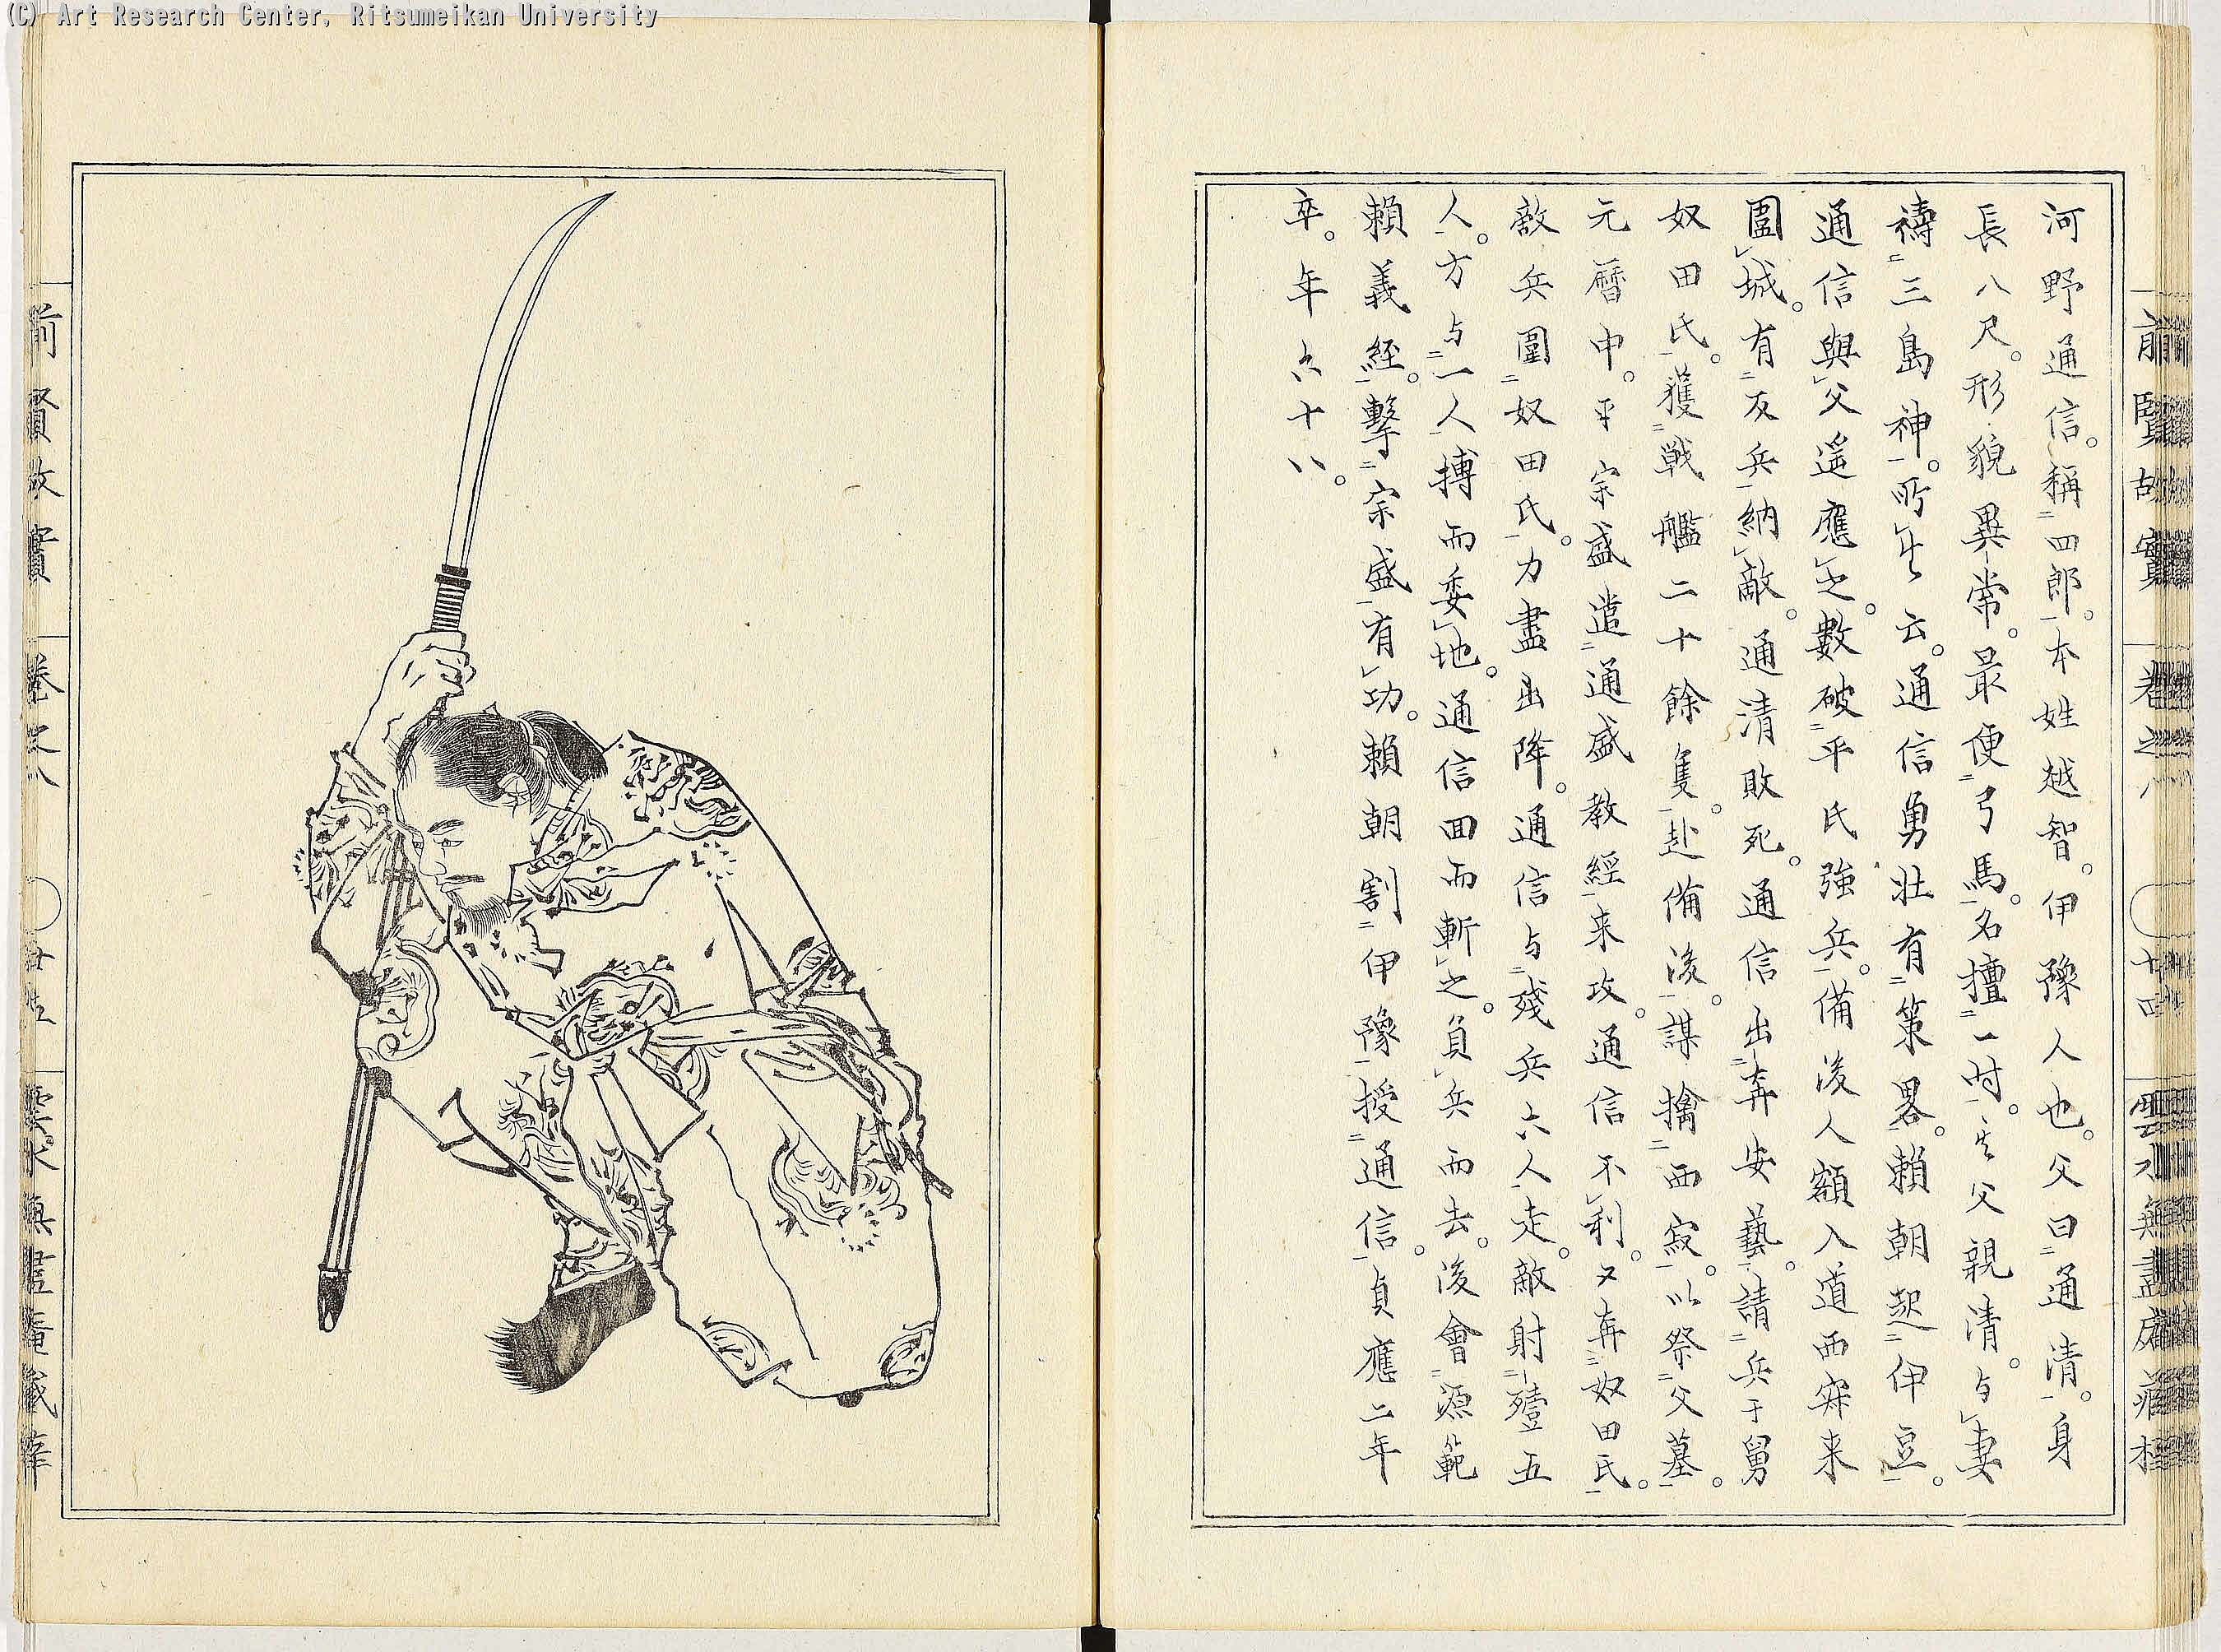 (C) Art Research Center, Ritsumeikan University
前賢故實 卷之八 十四
河野通信。稱四郎。本姓越智。伊豫人也。父曰通清。身
長八尺。形貌異常。最便弓馬。名擅一时。其父親清。与妻
禱三島神。所生云。通信勇壯有策畧。賴朝起伊豆。
通信與父遥應之。數破平氏強兵。備後人額入道西寂来
圍城。有反兵納敵。通清敗死。通信出奔安藝。請兵于舅
奴田氏。獲戦艦二十餘隻。赴備後。謀擒西寂。以祭父墓。
元暦中。平宗盛遣通盛教經来攻。通信不利。又奔奴田氏。
敵兵圍奴田氏。力盡出降。通信与殘兵六人走。敵射殪五
人。方与一人搏而委地。通信回而斬之。負兵而去。後會源範
賴義経。擊宗盛有功。賴朝割伊豫授通信。貞應二年
卒。年六十八。
前賢故實 卷之八